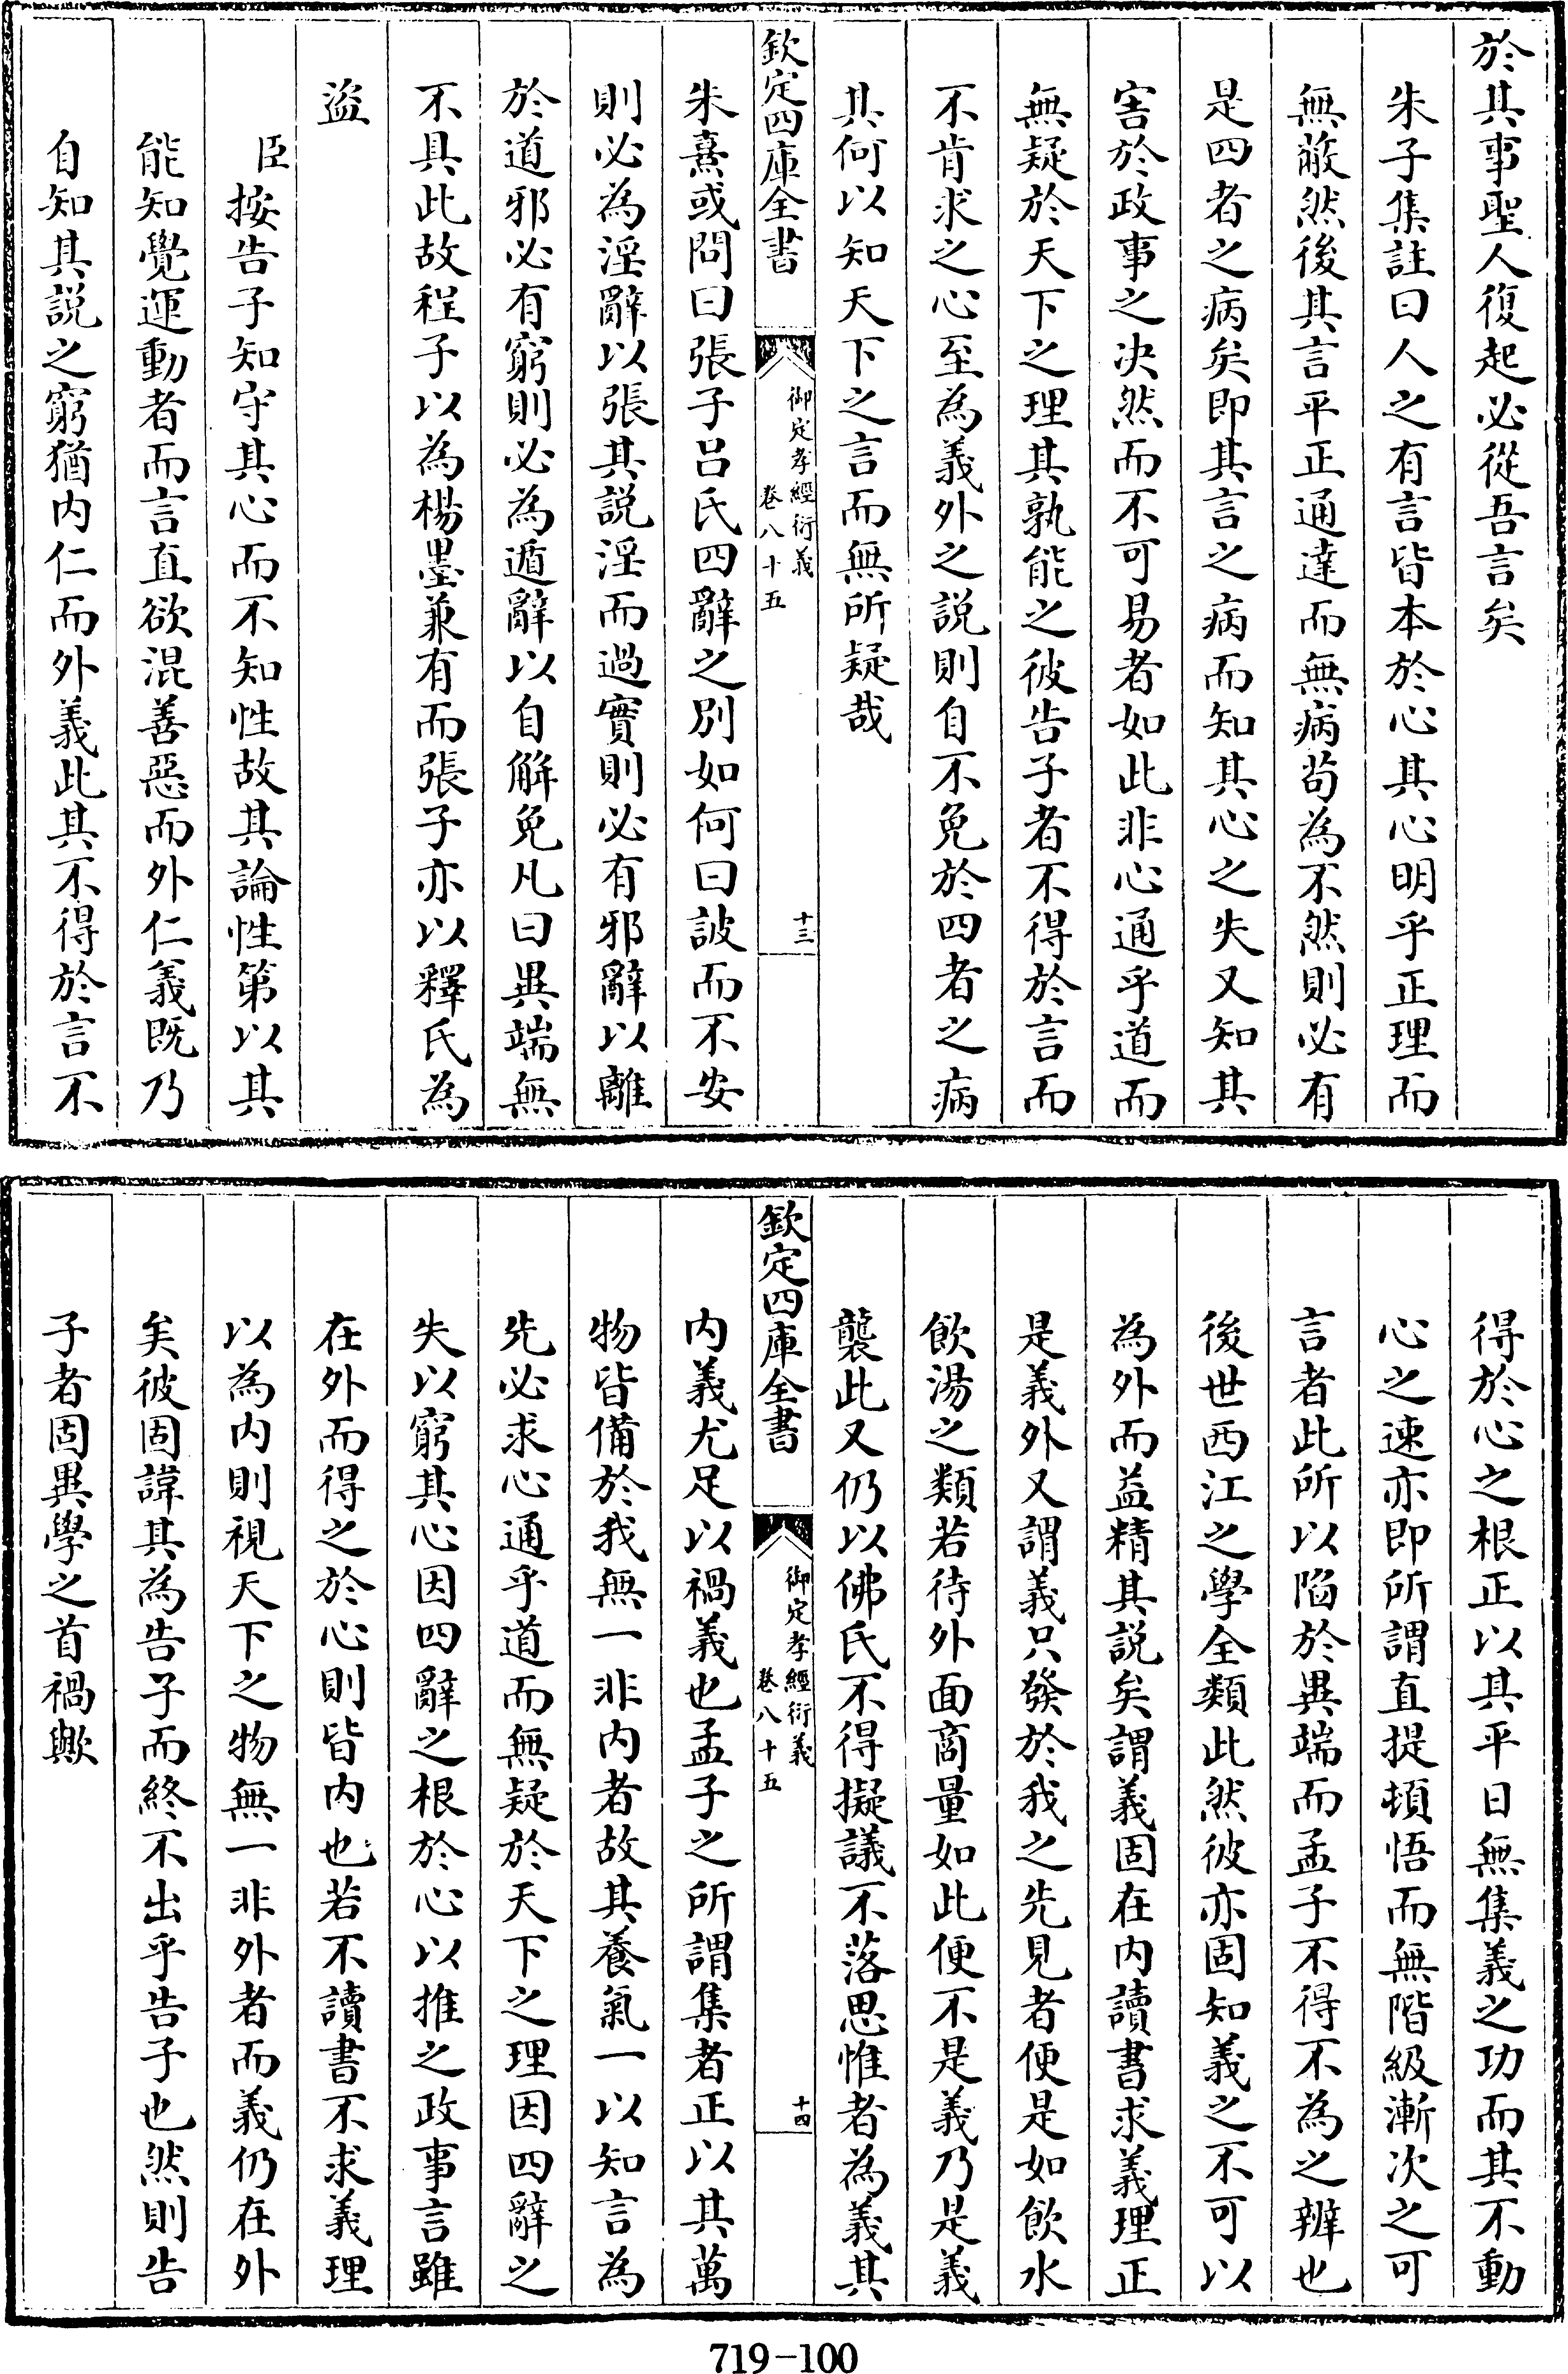 於其事聖人復起必從吾言矣
朱子集註曰人之有言皆本於心其心明乎正理而
無蔽然後其言平正通達而無病苟為不然則必有
是四者之病矣即其言之病而知其心之失又知其
害於政事之决然而不可易者如此非心通乎道而
無疑於天下之理其孰能之彼告子者不得於言而
不肯求之心至為義外之説則自不免於四者之病
其何以知天下之言而無所疑哉
欽定四庫全書
御定孝經衍義
卷八十五
十三
朱熹或問曰張子呂氏四辭之別如何曰詖而不安
則必為淫辭以張其説淫而過實則必有邪辭以離
於道邪必有窮則必為遁辭以自解免凡曰異端無
不具此故程子以為楊墨兼有而張子亦以釋氏為
盜
臣按告子知守其心而不知性故其論性第以其
能知覺運動者而言直欲混善惡而外仁義既乃
自知其説之窮猶内仁而外義此其不得於言不
得於心之根正以其平日無集義之功而其不動
心之速亦即所謂直提頓悟而無階級漸次之可
言者此所以陷於異端而孟子不得不為之辨也
後世西江之學全類此然彼亦固知義之不可以
為外而益精其説矣謂義固在内讀書求義理正
是義外又謂義只發於我之先見者便是如飲水
飲湯之類若待外面商量如此便不是義乃是義
襲此又仍以佛氏不得擬議不落思惟者為義其
欽定四庫全書
御定孝經衍義
卷八十五
十四
内義尤足以禍義也孟子之所謂集者正以其萬
物皆備於我無一非内者故其養氣一以知言為
先必求心通乎道而無疑於天下之理因四辭之
失以窮其心因四辭之根於心以推之政事言雖
在外而得之於心則皆内也若不讀書不求義理
以為内則視天下之物無一非外者而義仍在外
矣彼固諱其為告子而終不出乎告子也然則告
子者固異學之首禍歟
719-100